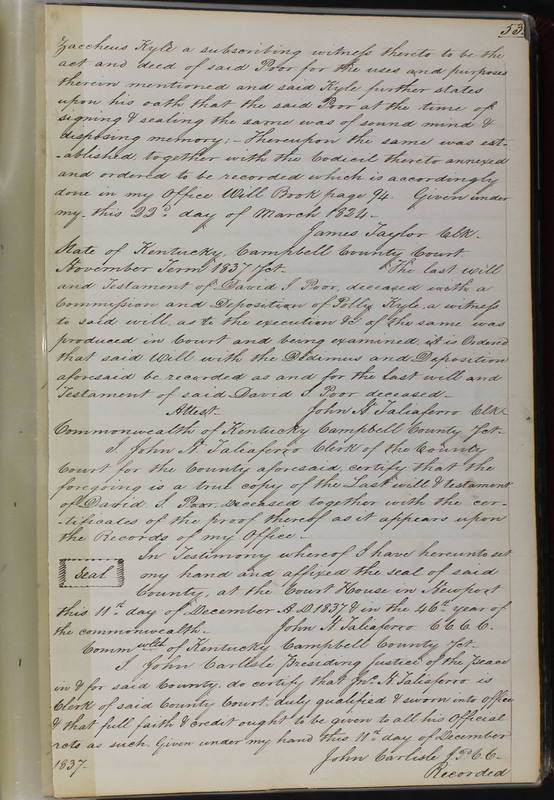 53.
Zaccheus Kyle a subscribing witness thereto to be the
act and deed of said Poor for the uses and purposes
therein mentioned and said Kyle further states
upon his oath that the said Poor at the time of
signing & sealing the same was of sound mind &
disposing memory; - Thereupon the same was est-
-ablished, together with the Codicil thereto annexed
and ordered to be recorded which is accordingly
done in my Office Will Book page 94. Given under
my, this 22d day of March 1824 -
James Taylor Clk.
State of Kentucky, Campbell County Court
November Term 1837 Sct. The last will
and Testament of David S Poor, deceased with a
Commission and Deposition of Polley Kyle, a witness
to said will, as to the execution &c of the same was
produced in Court and being examined it is Ordered
that said Will with the Dedimus and Deposition
aforesaid be recorded as and for the last will and
Testament of said David S. Poor deceased -
Attest. John N Taliaferro Clk
Commonwealth of Kentucky Campbell County Sct.
I John N. Taliaferro Clerk of the County
Court for the County aforesaid, certify that the
foregoing is a true copy of the Last will & testament
of David S. Poor, deceased together with the cer-
-tificates of the proof thereof as it appears upon
the Records of my Office -
In Testimony whereof I have hereunto set
Seal my hand and affixed the seal of said
County, at the Court House in Newport
this 11th day of December A.D. 1837 & in the 46th year of
the commonwealth - John N Taliaferro C C C C.
Commwlth of Kentucky Campbell County Sct.
I John Carlisle Presiding Justice of the Peace
in & for said County do certify that Jno. N Taliaferro is
Clerk of said County Court, duly qualified & sworn into office
& that full faith & credit ought to be given to all his Official
acts as such. Given under my hand this 11th day of December
1837. John Carlisle
Recorded